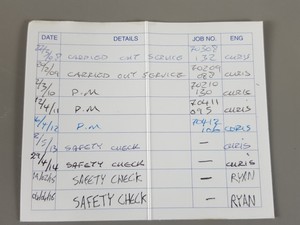 DATE DETAILS JOB NO. ENG
CARRIED OUT SERVICE 70308 132 CHRIS
/09 CARRIED OUT SERVICE 70209 087 CHRIS
/3/10 P.M 70210 130 CHRIS
/4/11 P.M 70411 095 CHRIS
/4/12 P.M 70412 CHRIS
/13 SAFETY CHECK – CHRIS
29/4/14 SAFETY CHECK – CHRIS
SAFETY CHECK – RYAN
SAFETY CHECK – RYAN